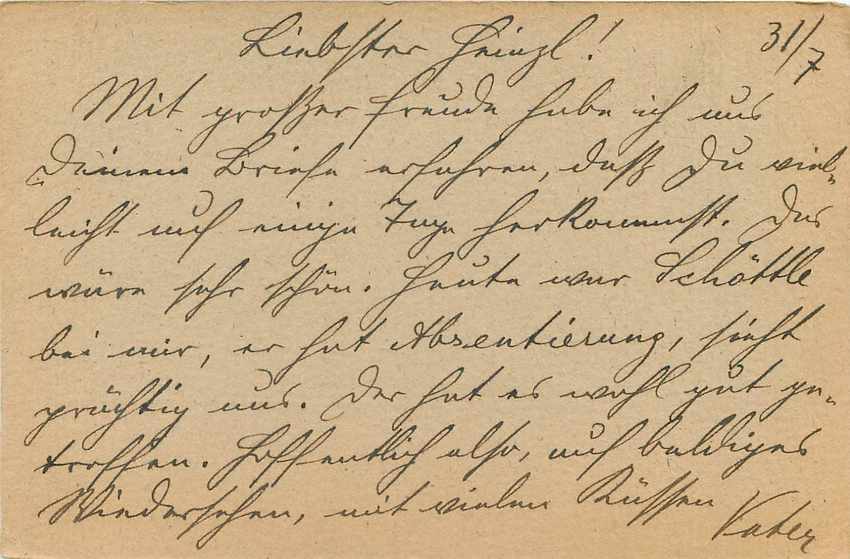 31/7
Liebster Heinzl!
Mit großer Freude habe ich aus
Deinem Briefe erfahren, daß Du viel-
leicht auf einige Tage herkommst. Das
wäre sehr schön. Heute war Schöttle
bei mir, er hat Absentierung, sieht
prächtig aus. Der hat es wohl gut ge-
troffen. Hoffentlich also, auf baldiges
Wiedersehen, mit vielen Küssen
Vater